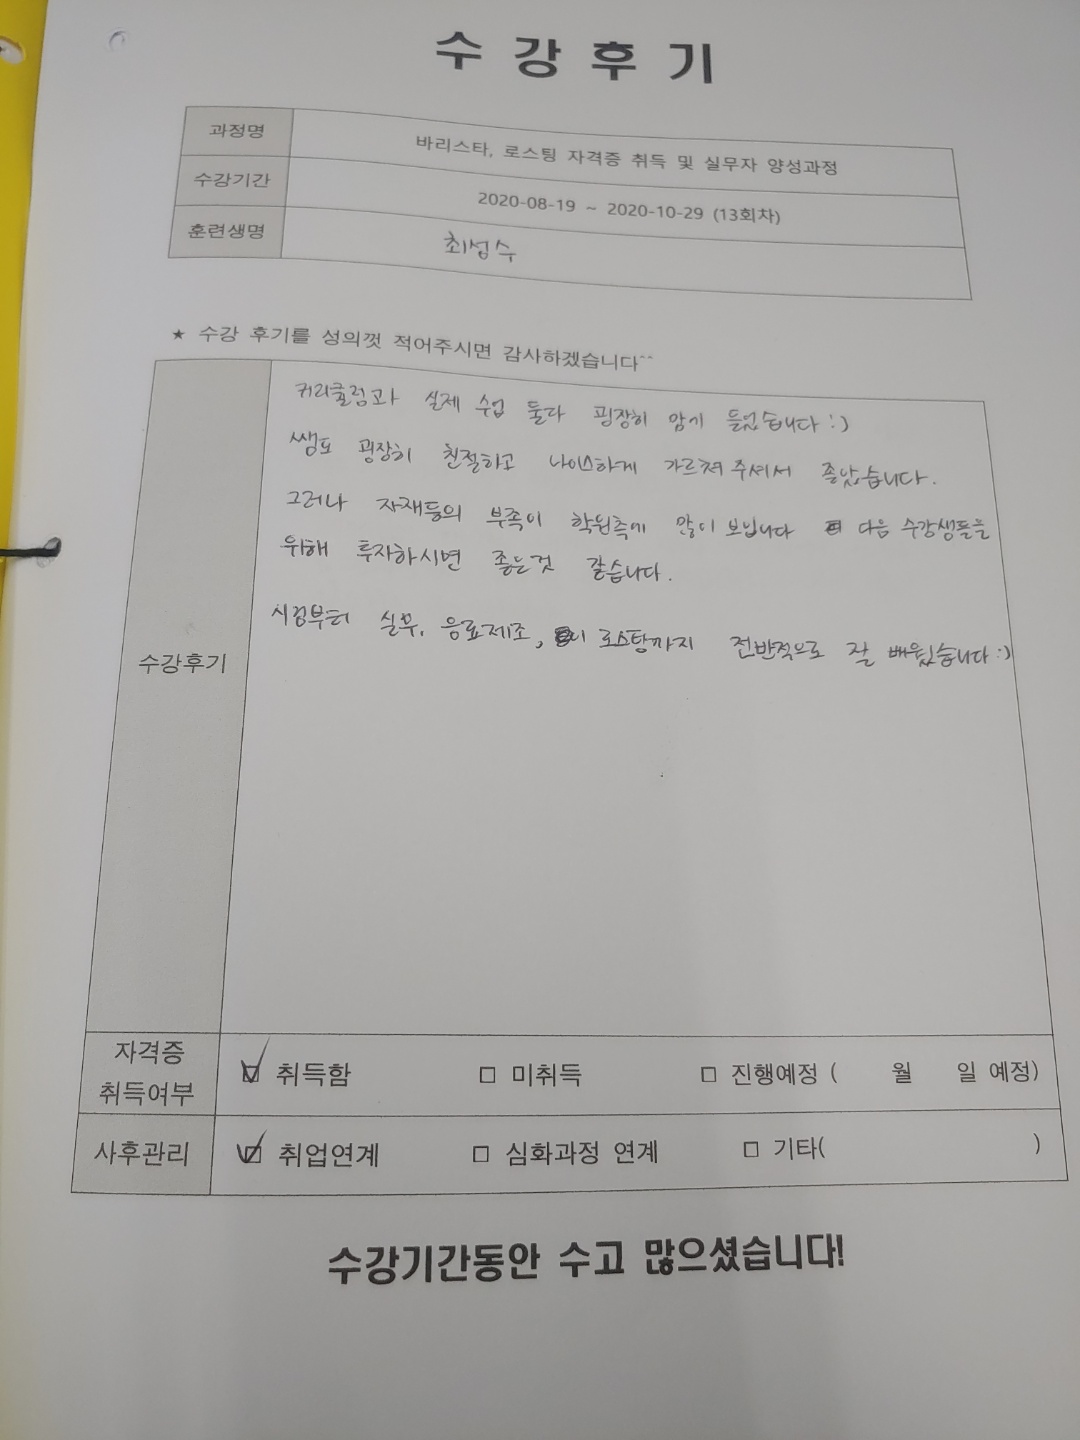 수 강 후 기
과정명 바리스타, 로스팅 자격증 취득 및 실무자 양성과정
수강기간 2020-08-19 ~ 2020-10-29 (13회차)
훈련생명 최성수
★ 수강 후기를 성의껏 적어주시면 감사하겠습니다^^
커리큘럼과 실제 수업 둘다 굉장히 맘에 들었습니다 :)
쌤도 굉장히 친절하고 나이스하게 가르쳐 주셔서 좋았습니다.
그러나 자재등의 부족이 학원측에 많이 보입니다 다음 수강생들을
위해 투자하시면 좋은것 같습니다.
시험부터 실무, 음료제조, 로스팅까지 전반적으로 잘 배웠습니다 :)
수강후기
자격증 취득여부 ☑ 취득함 □ 미취득 □ 진행예정 ( 월 일 예정)
사후관리 ☑ 취업연계 □ 심화과정 연계 □ 기타( )
수강기간동안 수고 많으셨습니다!